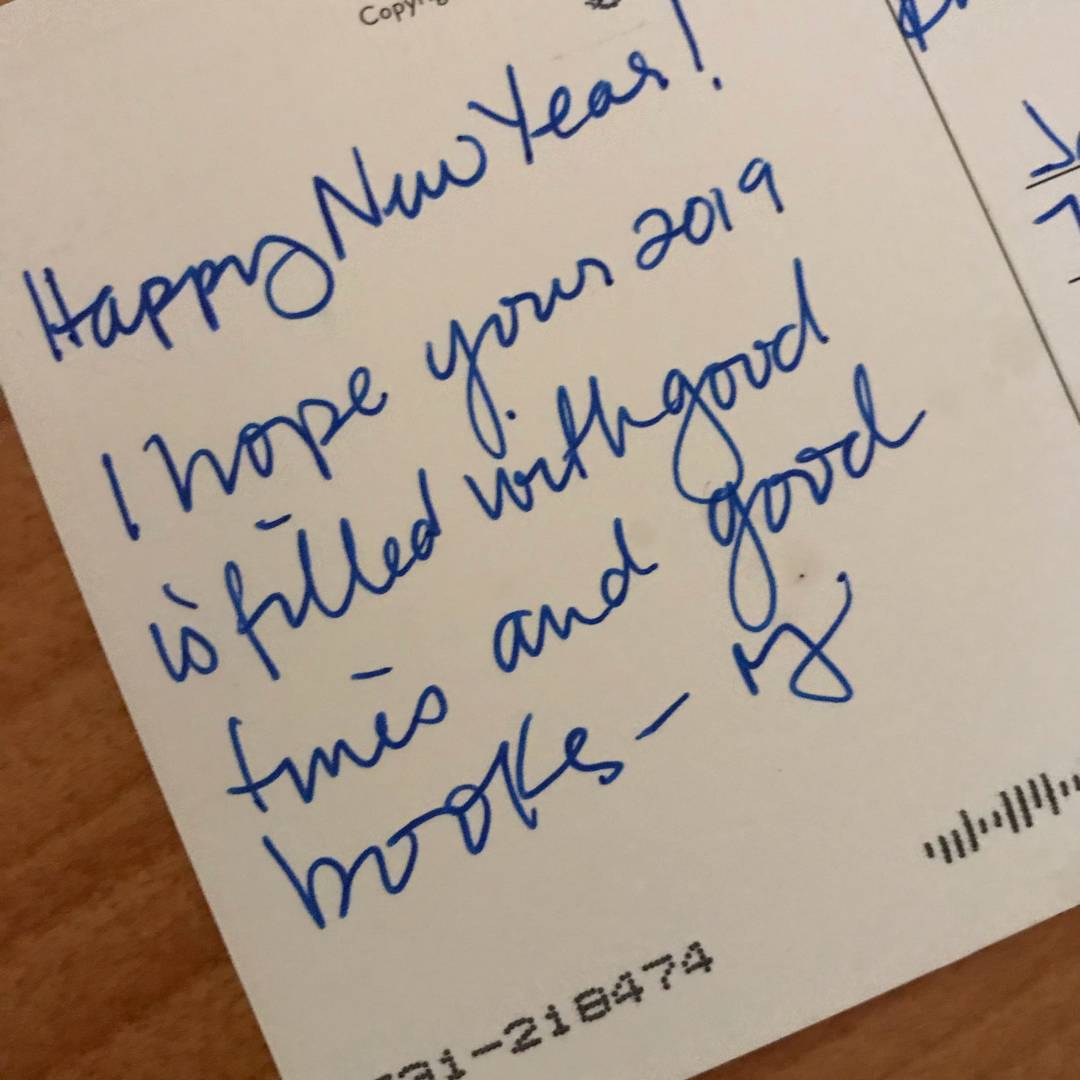 Happy New Year!
I hope your 2019
is filled with good
times and good
books -
-218474